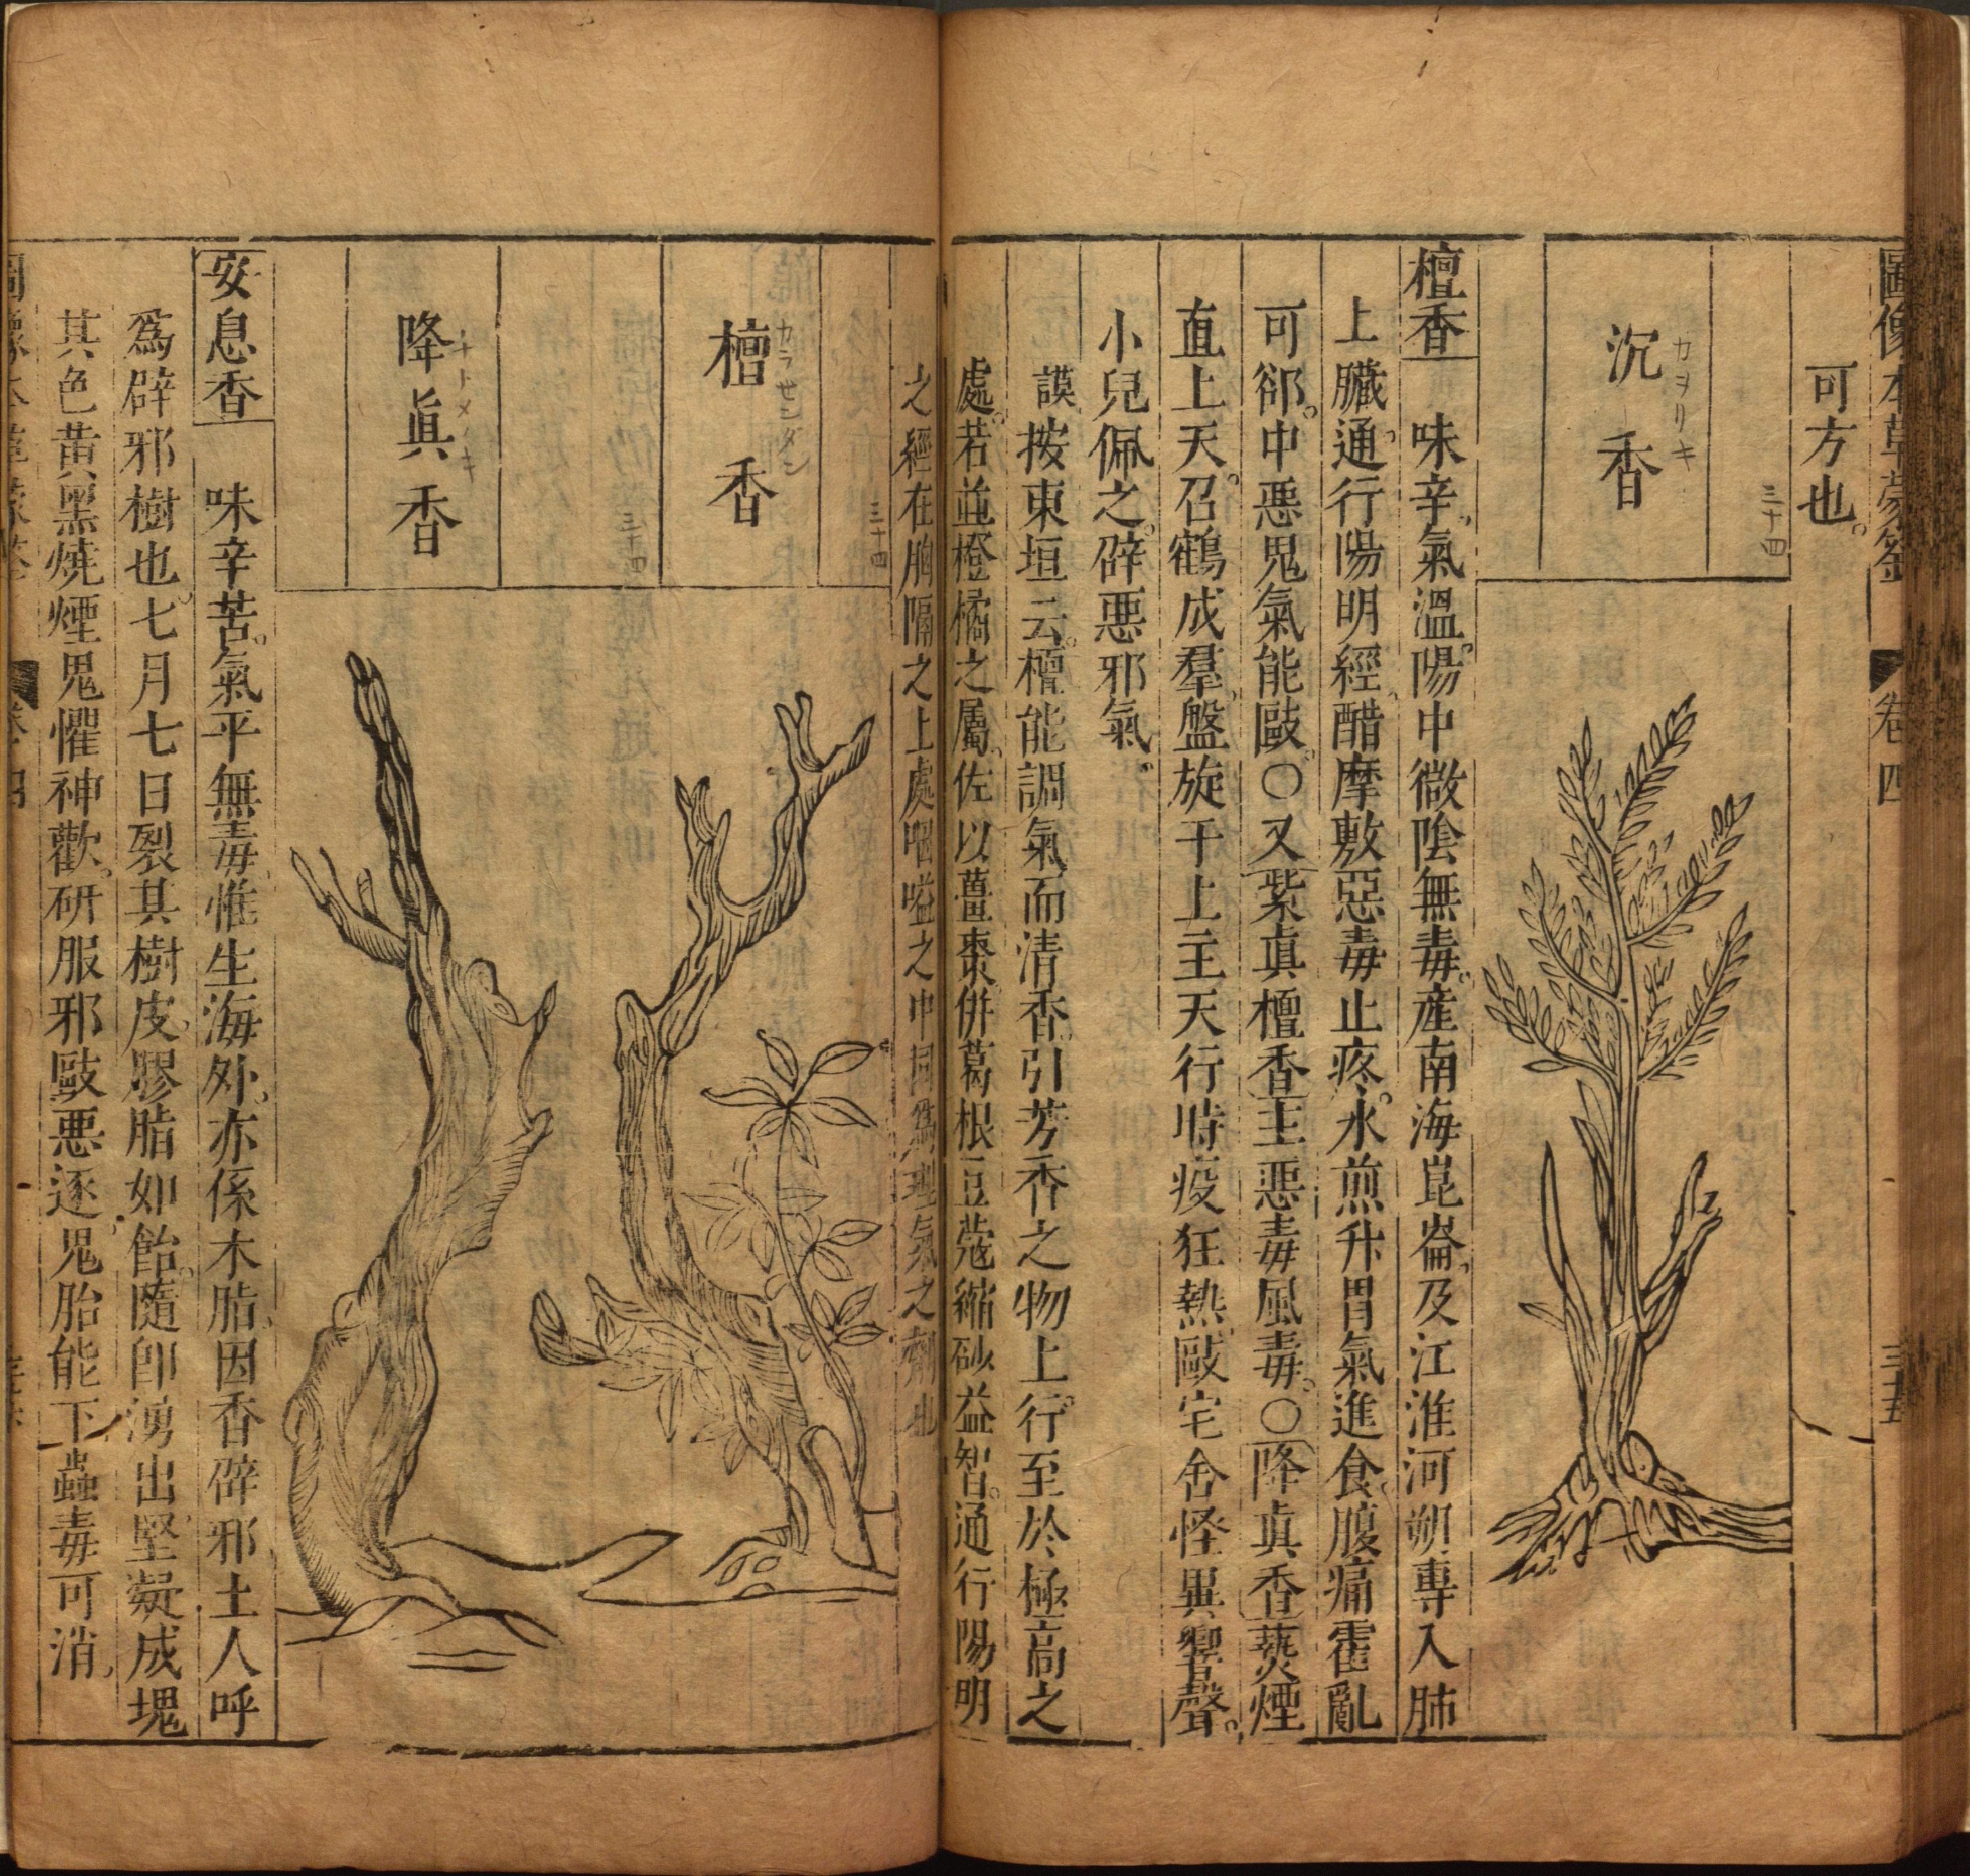 圖像本草蒙筌 卷四 三十五
可方也。
三十四
沉香
カヲリキ
檀香 味辛，氣溫。陽中微陰。無毒。產南海崑崙，及江淮河朔。專入肺
上臟，通行陽明經。醋摩敷惡毒止疼。水煎升胃氣進食。腹痛霍亂
可郤。中惡鬼氣能毆。○又紫眞檀香主惡毒風毒。○降眞香爇煙
直上天。召鶴成羣，盤旋于上。主天行時疫狂熱，毆宅舍怪異響聲。
小兒佩之。辟惡邪氣。
謨按東垣云。檀能調氣而清香，引芳香之物上行。至於極高之
處。若並橙橘之屬，佐以薑棗，併葛根豆蔻縮砂益智。通行陽明
之經，在胸隔之上，處咽嗌之中，同爲理氣之劑也
三十四
檀香
カラセンダン
三十四
降眞香
安息香 味辛苦。氣平，無毒。惟生海外，亦係木脂，因香辟邪，土人呼
爲辟邪樹也。七月七日裂其樹皮，膠脂如飴。隨卽湧出，堅凝成塊
其色黃黑，燒煙鬼懼神歡。研服邪毆惡逐。鬼胎能下，蠱毒可消，